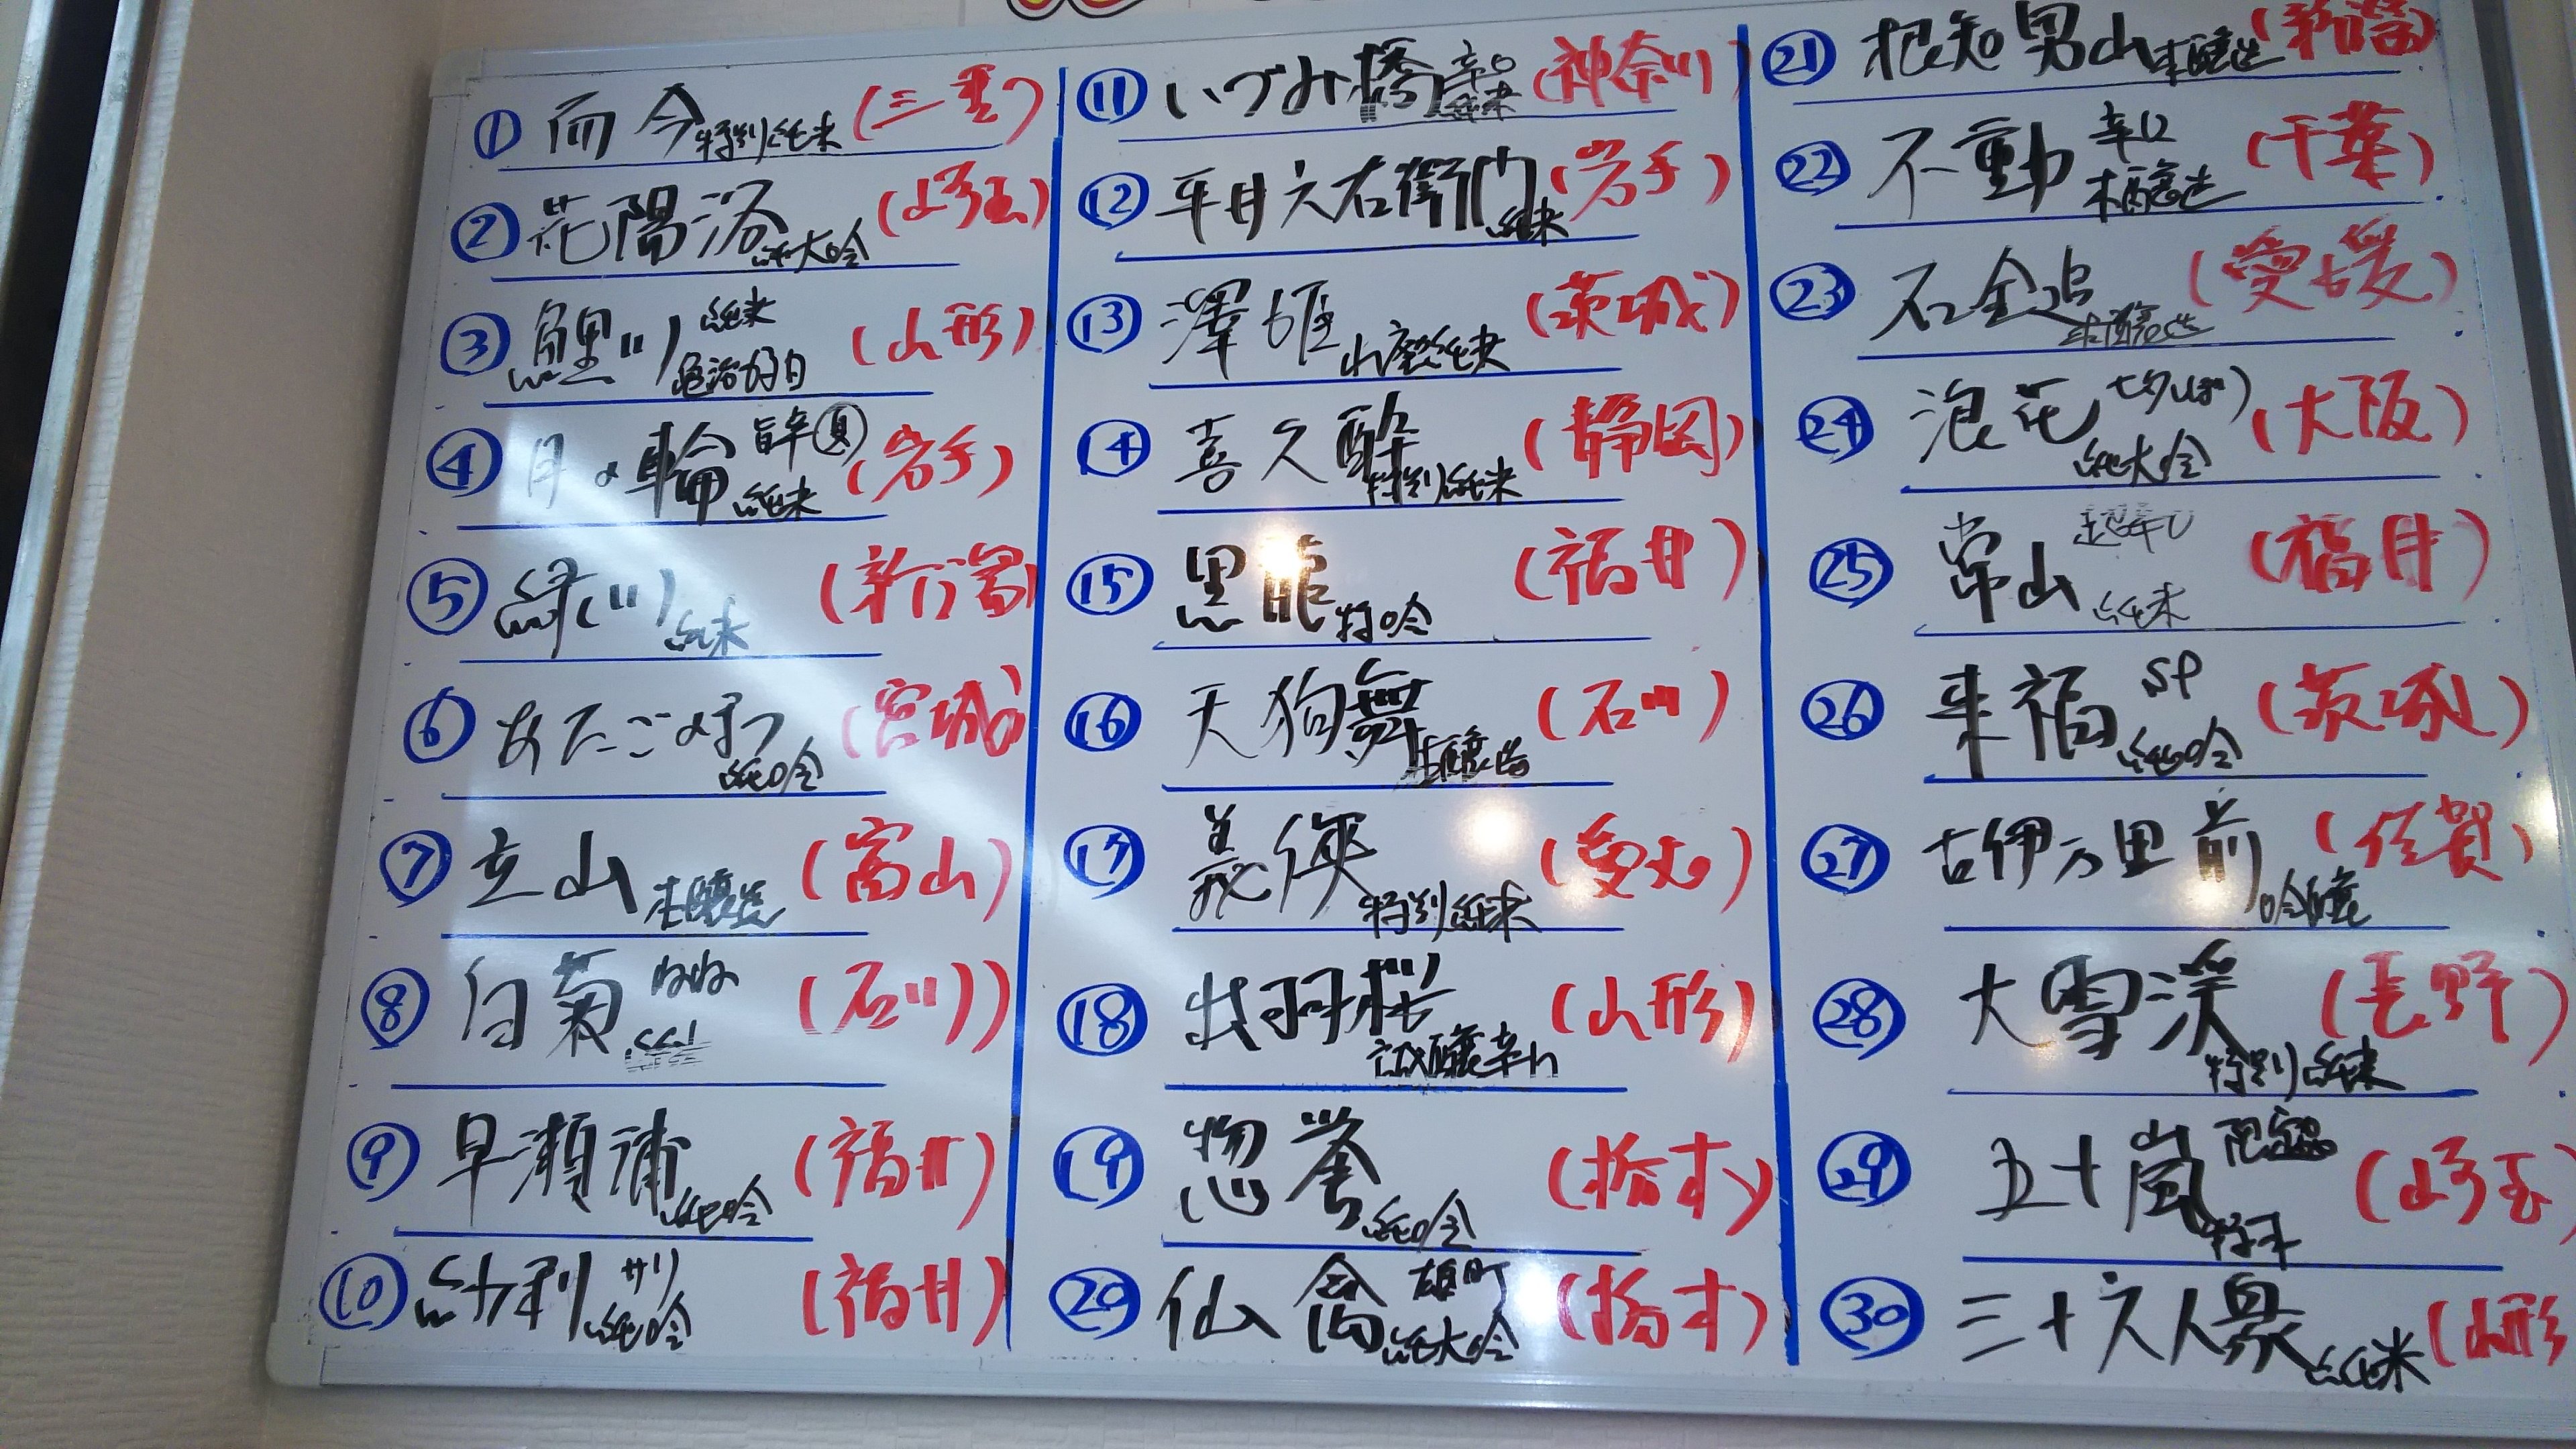 ① 而今 特別純米 (三重)
② 花陽浴 純大吟 (埼玉)
③ 鯉川 純米 亀治好日 (山形)
④ 月の輪 旨辛 夏 純米 (岩手)
⑤ 緑川 純米 (新潟)
⑥ あたごのまつ 純吟 (宮城)
⑦ 立山 本醸造 (富山)
⑧ 白菊 (石川)
⑨ 早瀬浦 純吟 (福井)
⑩ 紗利 サリ 純吟 (福井)
⑪ いづみ橋 辛口 純米 (神奈川)
⑫ 平井六右衛門 純米 (岩手)
⑬ 澤姫 山廃純米 (茨城)
⑭ 喜久酔 特別純米 (静岡)
⑮ 黒龍 特吟 (福井)
⑯ 天狗舞 本醸造 (石川)
⑰ 義侠 特別純米 (愛知)
⑱ 出羽桜 試醸辛口 (山形)
⑲ 惣誉 純吟 (栃木)
⑳ 仙禽 雄町 純大吟 (栃木)
㉑ 根知男山 本醸造 (新潟)
㉒ 不動 辛口 本醸造 (千葉)
㉓ 石鎚 本醸造 (愛媛)
㉔ 浪花 純大吟 (大阪)
㉕ 常山 超辛口 純米 (福井)
㉖ 来福 SP 純吟 (茨城)
㉗ 古伊万里 前 吟醸 (佐賀)
㉘ 大雪渓 特別純米 (長野)
㉙ 五十嵐 限定品 (埼玉)
㉚ 三十六人衆 純米 (山形